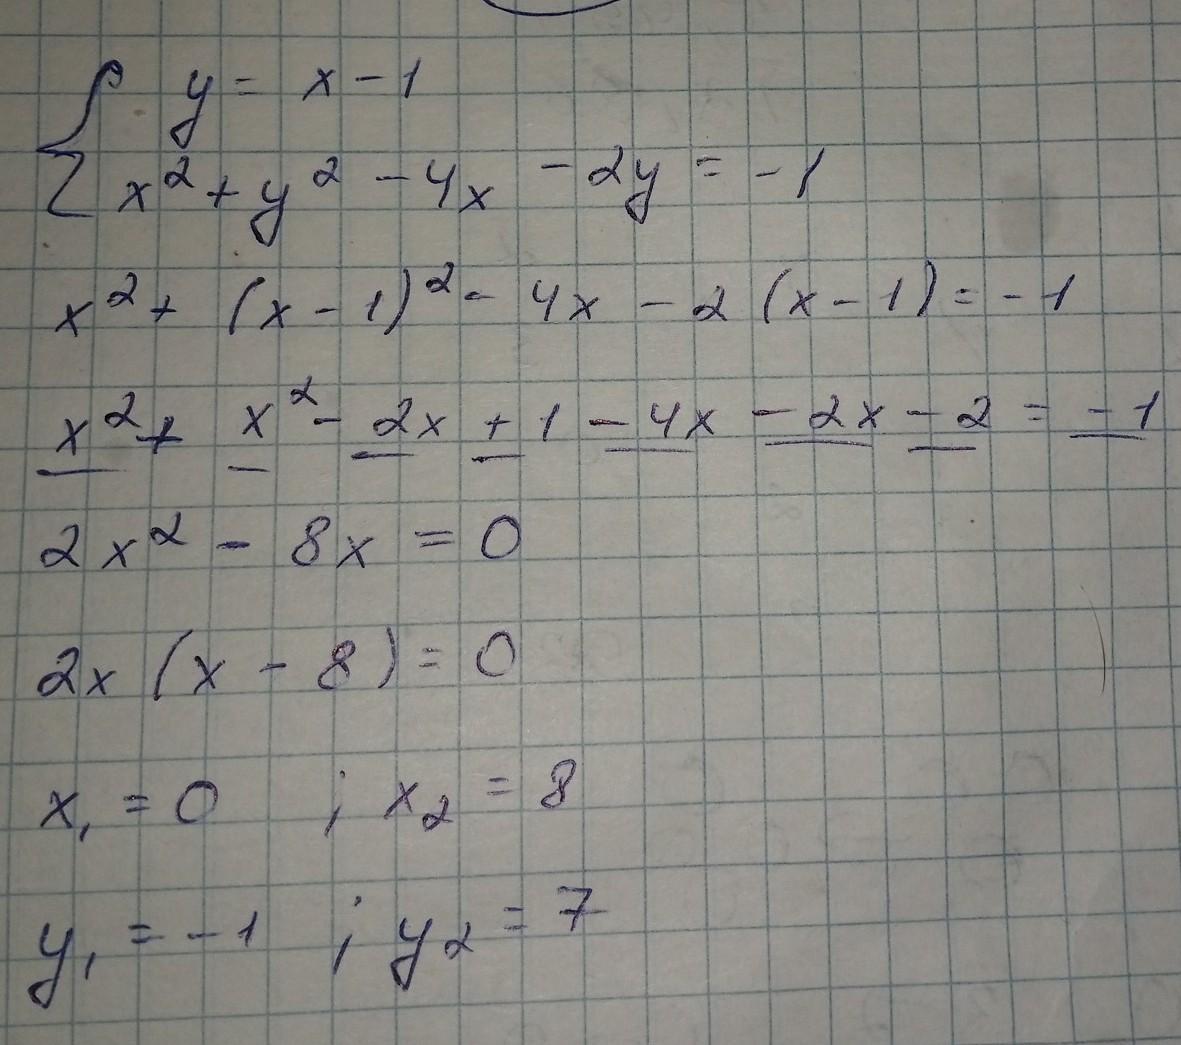 y = x - 1
x² + y² - 4x - 2y = -1
x² + (x - 1)² - 4x - 2 (x - 1) = -1
x² + x² - 2x + 1 - 4x - 2x - 2 = -1
2x² - 8x = 0
2x (x - 8) = 0
x₁ = 0 ; x₂ = 8
y₁ = -1 ; y₂ = 7